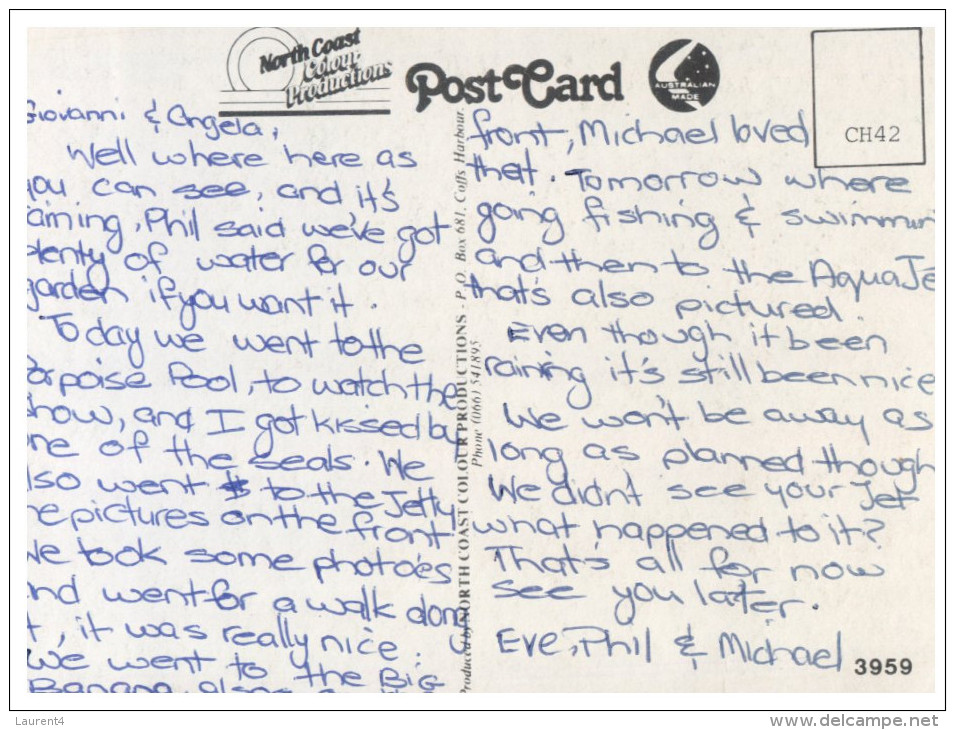 North Coast
Colour
Productions
PostCard
AUSTRALIAN
MADE
CH42
Giovanni & Angela,
Well where here as
you can see, and it's
raining, Phil said we've got
plenty of water for our
garden if you want it.
Today we went to the
Porpoise Pool, to watch the
show, and I got kissed by
one of the seals. We
also went to the Jetty
he pictures on the front
We took some photoes
and went for a walk along
it, it was really nice.
We went to the Big
Banana
Produced by NORTH COAST COLOUR PRODUCTIONS - P.O. Box 681, Coffs Harbour.
Phone (066) 541895
front, Michael loved
that. Tomorrow where
going fishing & swimmin
and then to the Aqua Je
that's also pictured.
Even though it been
raining it's still been nice
We won't be away as
long as planned though
We didn't see your Jet
what happened to it?
That's all for now
see you later.
Eve, Phil & Michael
3959
Laurent4
www.delcampe.net